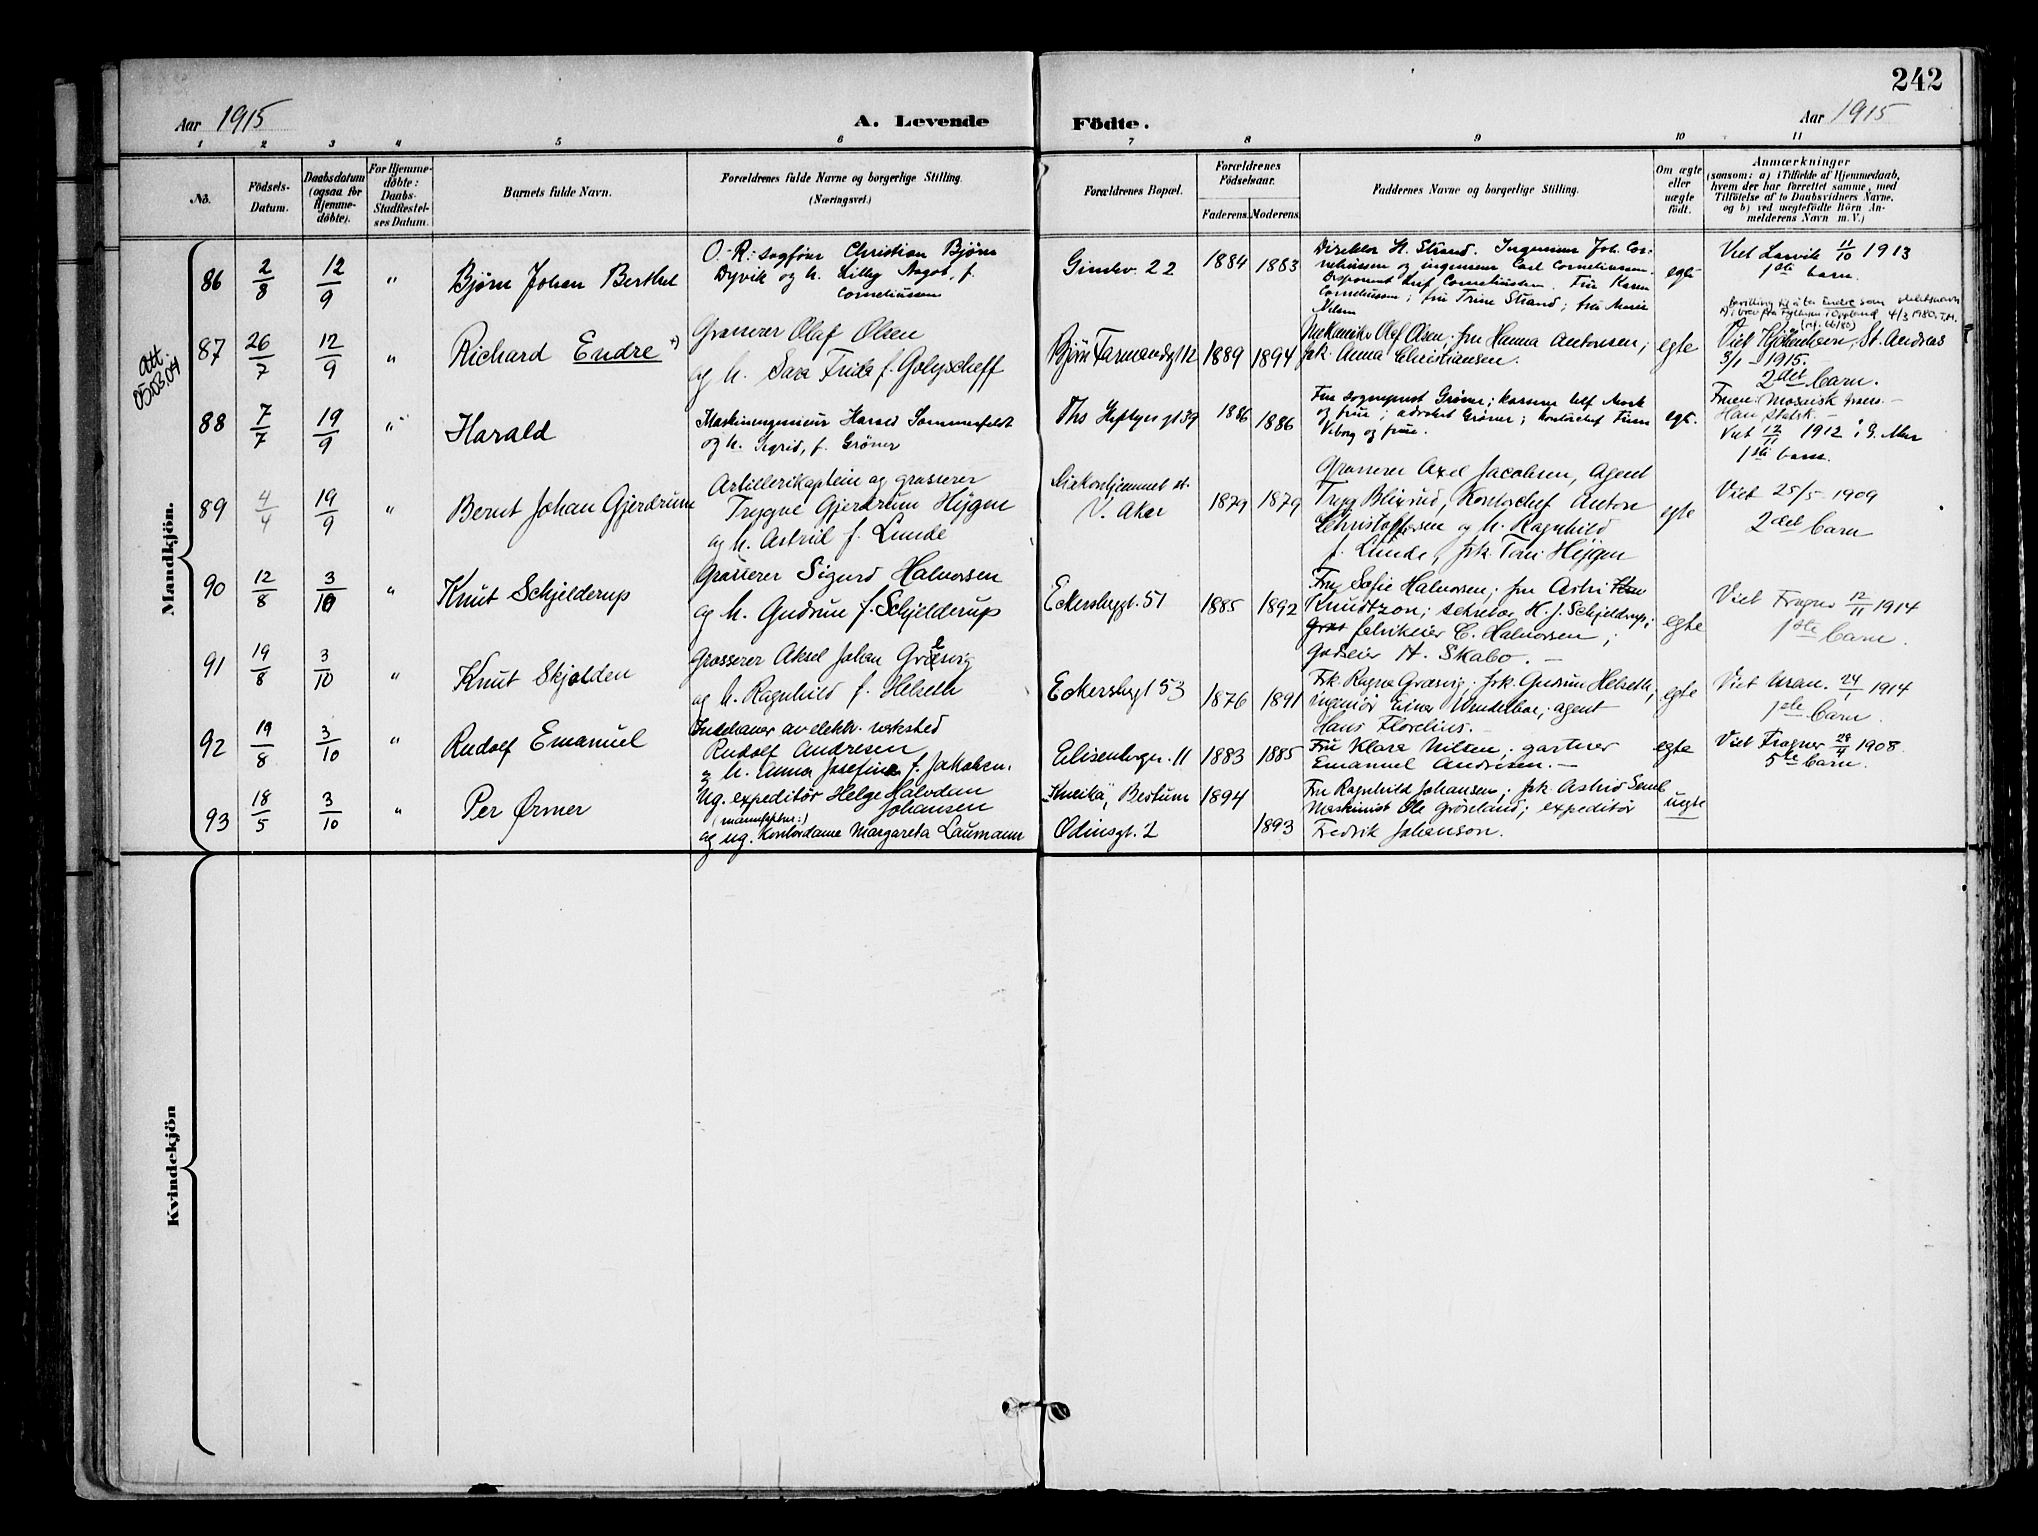 242
Aar 1915
A. Levende Födte.
Aar 1915
1 2 3 4 5 6 7 8 9 10 11
No.
Födsels-Datum.
Daabsdatum (ogsaa for Hjemmedøbte).
For Hjemmedøbte: Daabs-Stadfæstelses Datum.
Barnets fulde Navn.
Forældrenes fulde Navne og borgerlige Stilling. (Næringsvei.)
Forældrenes Bopæl.
Forældrenes Födselsaar.
Faderens. Moderens.
Faddernes Navne og borgerlige Stilling.
Om ægte eller uægte födt.
Anmærkninger
(saasom: a) i Tilfælde af Hjemmedaab, hvem der har forrettet samme, med Tilföielse af to Daabsvidners Navne, og b) ved uægtefödte Börn Anmelderens Navn m. V.)
Mandkjön.
86 2/8 12/9 "
Bjørn Johan Berthel
O.-R.: sagfører Christian Bjørn
Dyvik og h. Lilly Aagot, f.
Corneliussen
Gimlev. 22
1884 1883
Direktør H. Strand. Ingeniør Joh. Cor-
neliussen og ingeniør Carl Corneliussen.
Disponent Leif Corneliussen. Fru Karen
Corneliussen; fru Trine Strand; fru
egte
Viet Larvik 11/10 1913
1ste barn.
Att. 05.03.04
87 26/7 12/9 "
Richard Endre +)
Grosserer Olaf Olsen
og h. Sara Frida f. Golyscheff
Bjørn Farmandsgt 12
1889 1894
Mekaniker Olaf Olsen; fru Hanna Antonsen;
frk. Anna Christiansen.
egte
4/3 1980.
Viet Kjøbenhavn, St. Andreas
3/1 1915.
2det barn.
88 7/7 19/9 "
Harald
Maskiningeniør Harald Sommerfeldt
og h. Sigrid, f. Gröner
Ths Heftyes gt 39
1886 1886
Fru sogneprest Gröner;
og frue; advokat Grøner; kontorchef
Viborg og frue.
egte.
Fruen: Mosaisk troes.-
Han statsk. -
Viet 12/11 1912 i G. Aker
1ste barn.
89 4/4 19/9 "
Bernt Johan Gjerdrum
Artillerikaptein og grosserer
Trygve Gjerdrum Heÿgen
og h. Astrid f. Lunde
V. Aker
1879 1879
Grosserer Axel Jacobsen, Agent
Tryg Blixrud, Kontorchef Anton
Christoffersen og h. Ragnhild
f. Lunde, frk Toni Heÿgen
egte
Viet 25/5 1909
2det barn
90 12/8 3/10 "
Knut Schjelderup
Grosserer Sigurd Halvorsen
og h. Gudrun f. Schjelderup
Eckersbggt. 51
1885 1892
Fru Sofie Halvorsen; fru Astri
Knudtzon; sekretær H. J. Schjeldrup;
fabrikeier C. Halvorsen;
Godseier H. Skabo. -
egte
Viet Frogner 12/11 1914
1ste barn.
91 19/8 3/10 "
Knut Skjolden
Grosserer Aksel Johan Græsvig
og h. Ragnhild f. Helseth
Eckersbgt 53
1876 1891
Frk. Ragna Græsvig; frk. Gudrun Helseth;
ingeniør Einar Wenderboe; agent
Hans Florelius. -
egte
Viet Uran. 24/1 1914
1ste barn.
92 19/8 3/10 "
Rudolf Emanuel
Indehaver av elektr. verksted
Rudolf Andresen
og h. Anna Josefine f. Jakobsen.
Elisenbergv. 11
1883 1885
Fru Klara Nilsen; gartner
Emanuel Andresen. -
egte
Viet Frogner 28/4 1908.
5te barn.
93 18/5 3/10 "
Per Ørmer
Ug. expeditør Helge Halvdan
Johansen
og ug. Kontordame Margareta Laumann
Kneika, Bestum
Odinsgt. 2
1894 1893
Fru Ragnhild Johansen; frk. Astrid
Maskinist Ole Gröseland; expeditør
Fredrik Johanson.
uegte
Kvindekjön